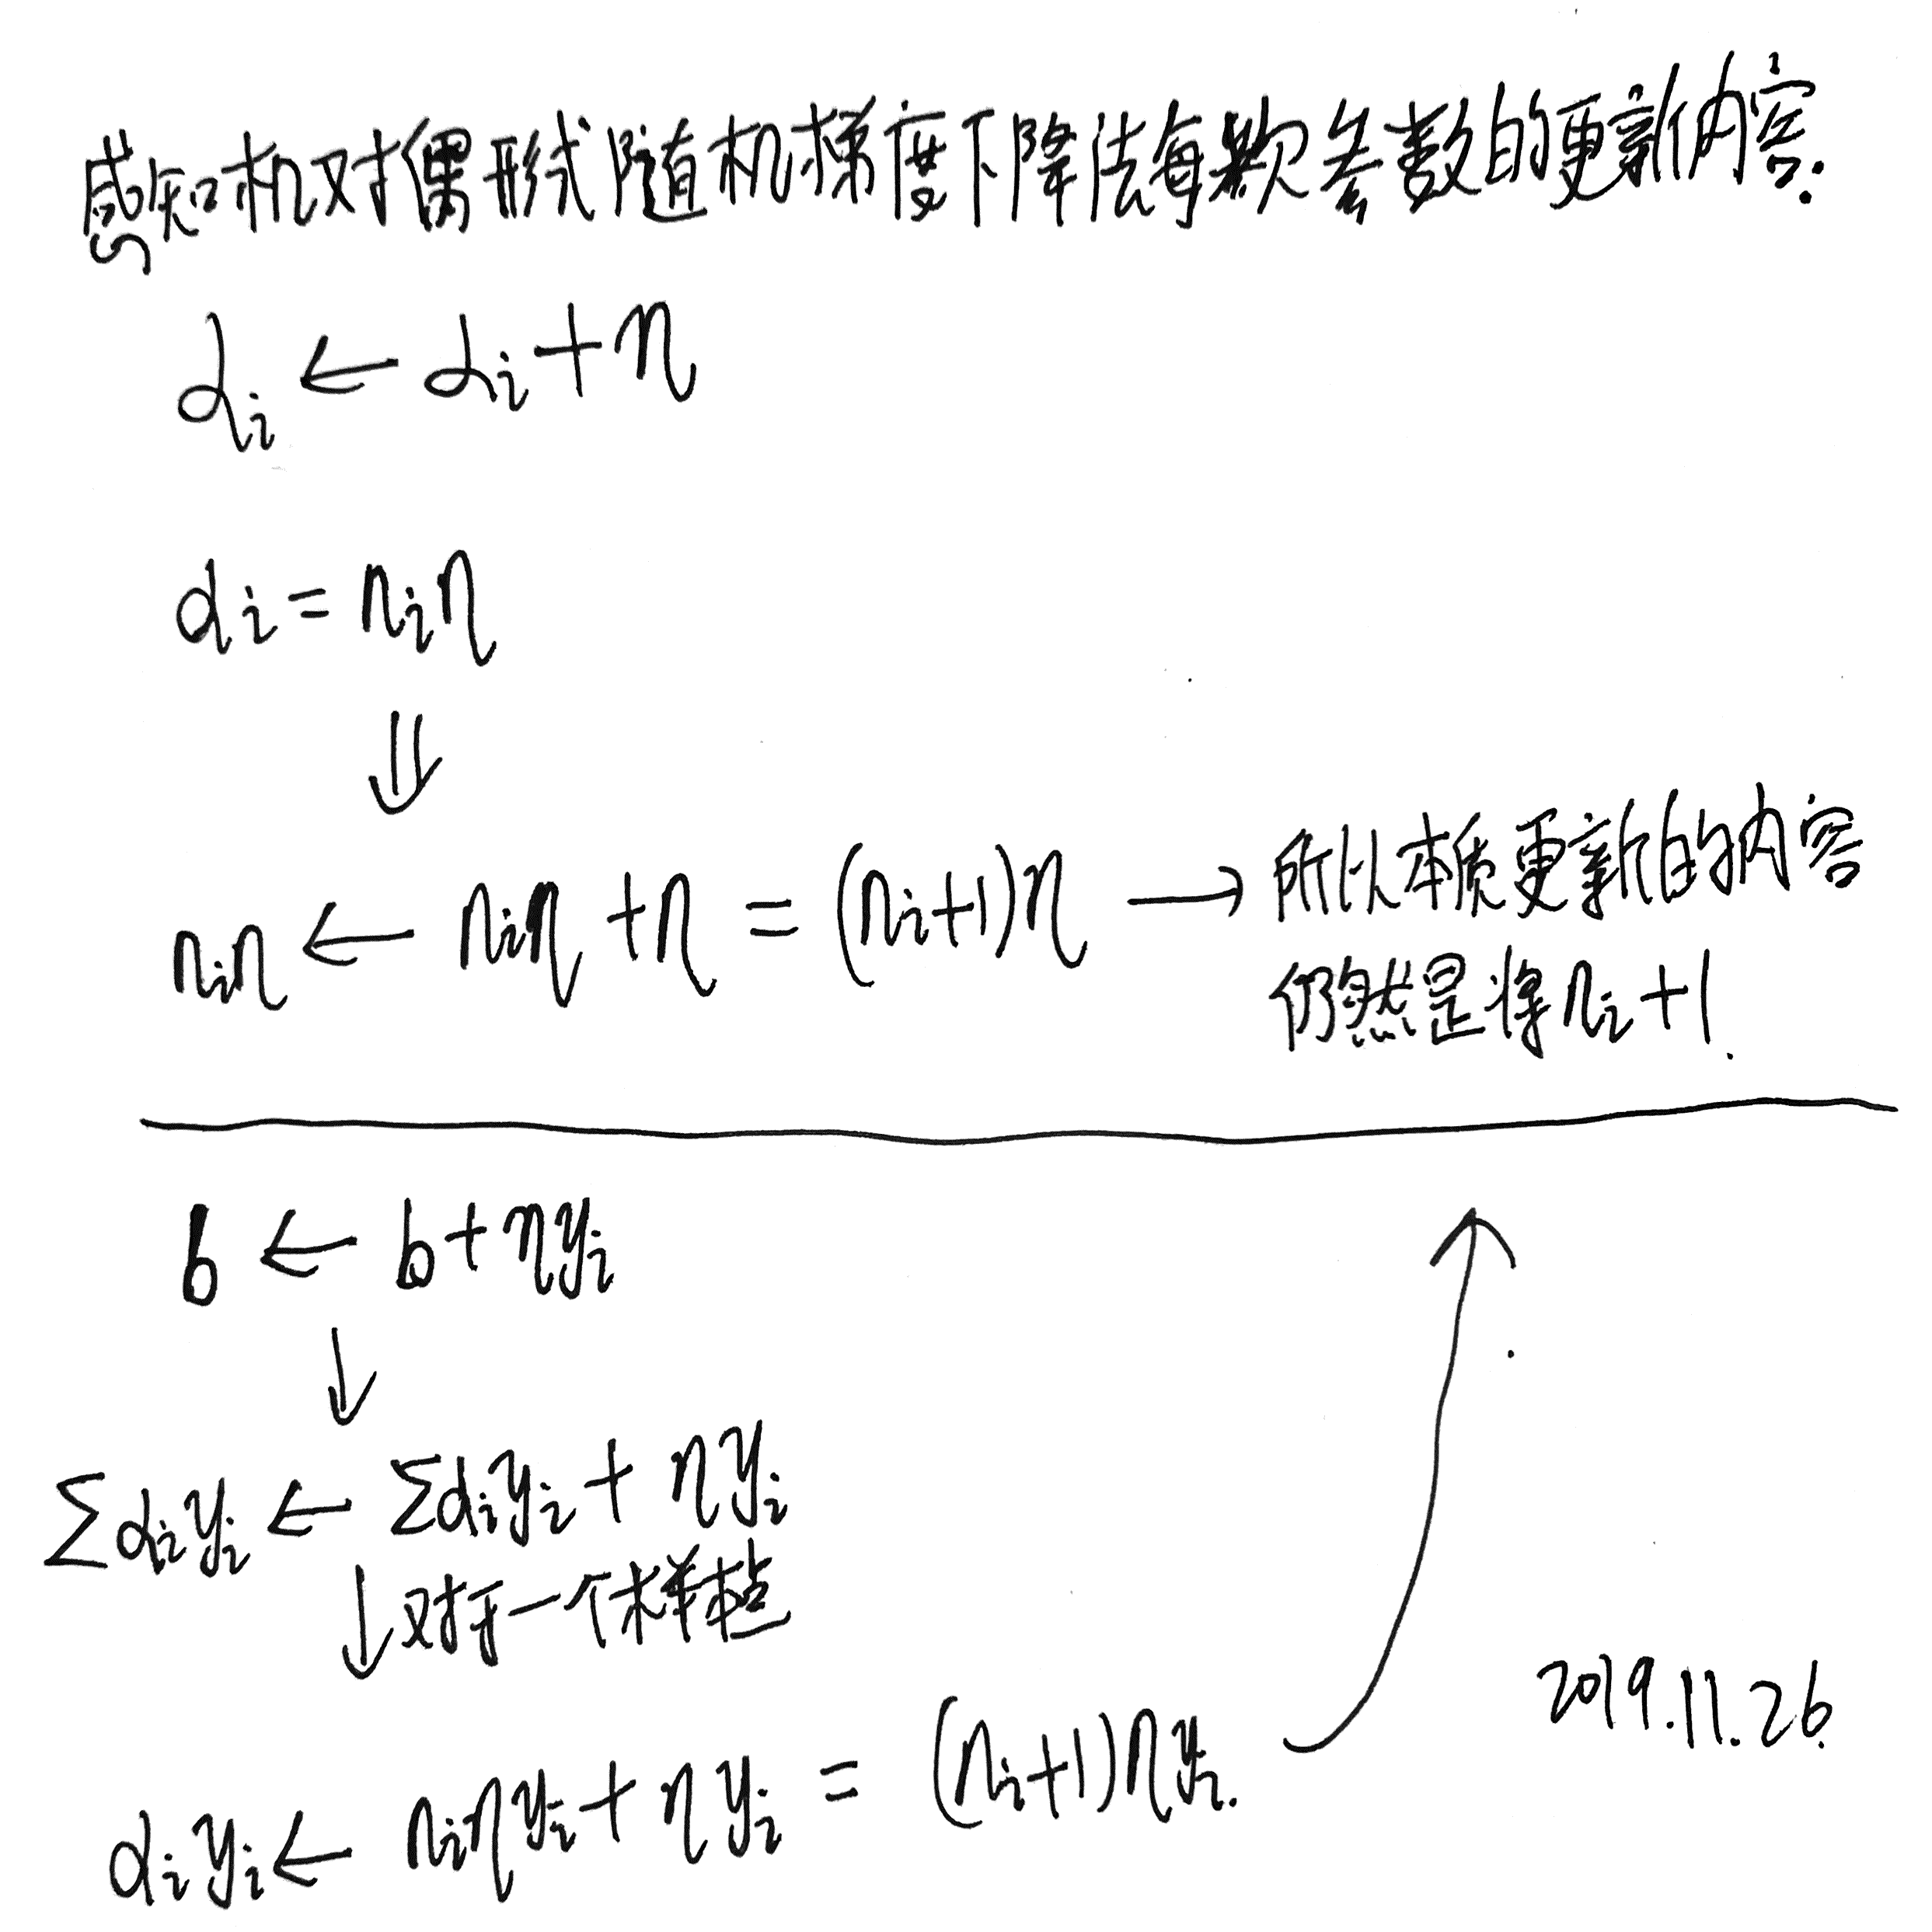 感知机对偶形式随机梯度下降法每款参数的更新内容:
αi ← αi + η
αi = niη
⇓
niη ← niη + η = (ni+1)η → 所以本质更新的内容
仍然是将ni+1.
b ← b + ηyi
↓
Σαiyi ← Σαiyi + ηyi
↓对于一个样本点
αiyi ← niηyi + ηyi = (ni+1)ηyi.
2019.11.26.